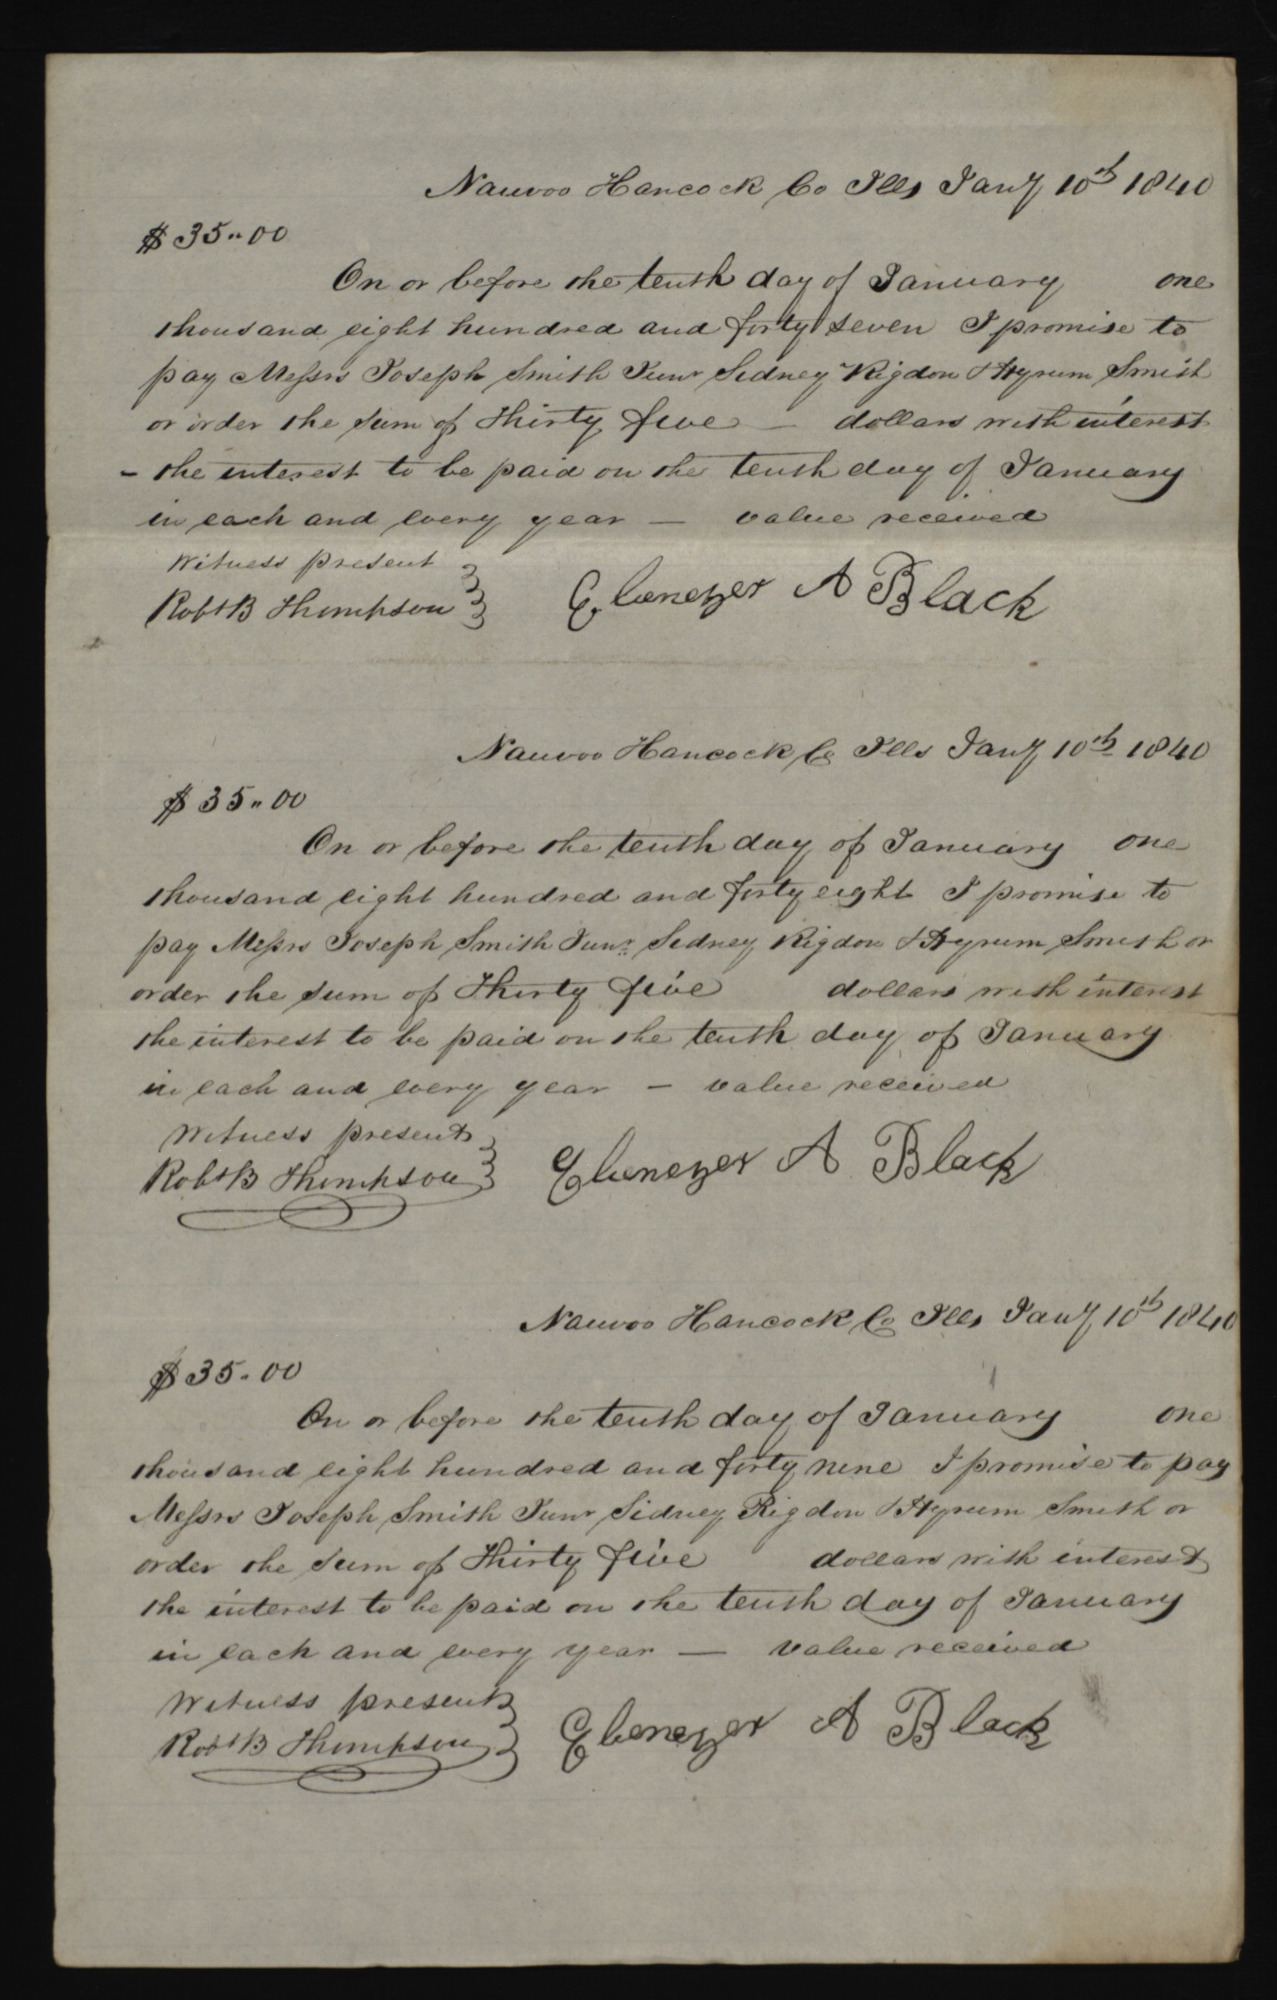 Nauvoo Hancock Co Ills Jany 10th 1840
$35.,00
On or before the tenth day of January one
thousand eight hundred and forty seven I promise to
pay Messrs Joseph Smith Junr Sidney Rigdon & Hyrum Smith
or order the sum of Thirty five — dollars with interest
— the interest to be paid on the tenth day of January
in each and every year — value received
Witness present
Robt B Thompson
Ebenezer A Black
Nauvoo Hancock Co Ills Jany 10th 1840
$35.,00
On or before the tenth day of January one
thousand eight hundred and forty eight I promise to
pay Messrs Joseph Smith Junr. Sidney Rigdon & Hyrum Smith or
order the sum of Thirty five dollars with interest
the interest to be paid on the tenth day of January
in each and every year — value received
Witness present
Robt B Thompson
Ebenezer A Black
Nauvoo Hancock Co Ills Jany 10th 1840
$35.00
On or before the tenth day of January one
thousand eight hundred and forty nine I promise to pay
Messrs Joseph Smith Junr Sidney Rigdon & Hyrum Smith or
order the sum of Thirty five dollars with interest
the interest to be paid on the tenth day of January
in each and every year — value received
Witness present
Robt B Thompson
Ebenezer A Black